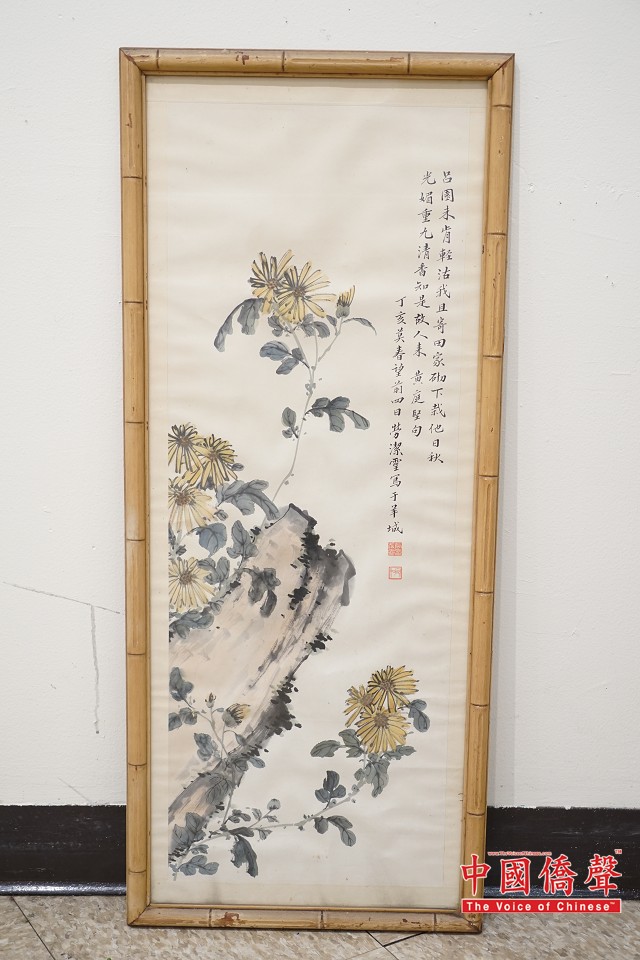 呂園未肯輕沽我且寄田家砌下栽他日秋
光媚重九清香知是故人來 黄庭堅句
丁亥莫春望前四日勞潔靈寫于羊城
中國僑聲™
The Voice of Chinese™